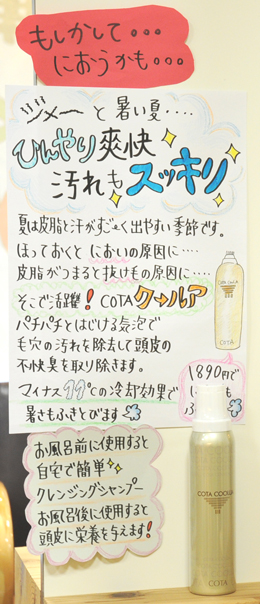 もしかして・・・
におうかも・・・
ジメーと暑い夏・・・・
ひんやり爽快
汚れもスッキリ
夏は皮脂と汗がすごく出やすい季節です。
ほっておくと においの原因に・・・・
皮脂がつまると抜けもの原因に・・・・
そこで活躍! COTA クゥルア
パチパチとはじける気泡で
毛穴の汚れを除去して頭皮の
不快臭を取り除きます。
マイナス11℃の冷却効果で
暑さもふきとびます
COTA COOLUR
COTA
1890円で
お風呂前に使用すると
自宅で簡単
クレンジングシャンプー
お風呂後に使用すると
頭皮に栄養を与えます!
COTA COOLUR
COTA